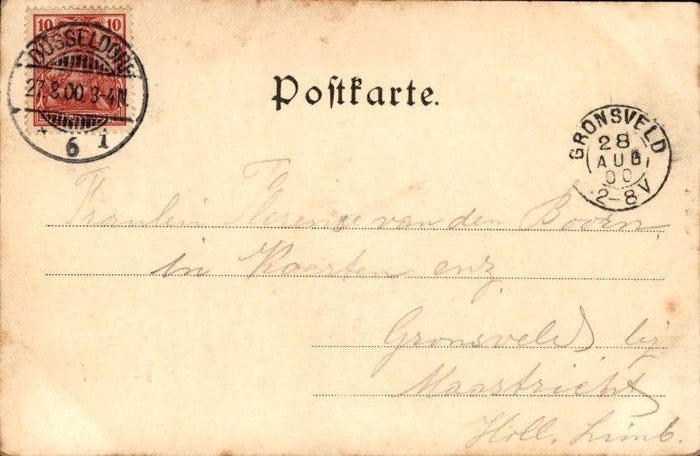 10 10
DÜSSELDORF
27.8.00.3-4N.
* 6 1
Postkarte.
GRONSVELD
28
AUG
00
2-8V
Fräulein Florence van den Boorn
in Koerten enz
Gronsveld bij
Maastricht
Holl. Limb.